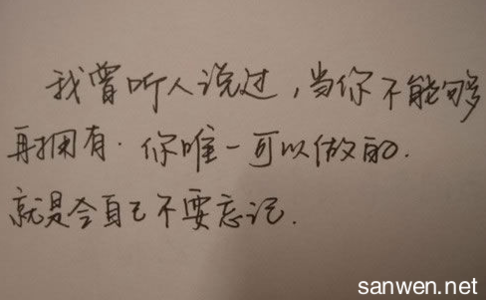 我曾听人说过，当你不能够
再拥有．你唯一可以做的．
就是令自己不要忘记．
sanwen.net